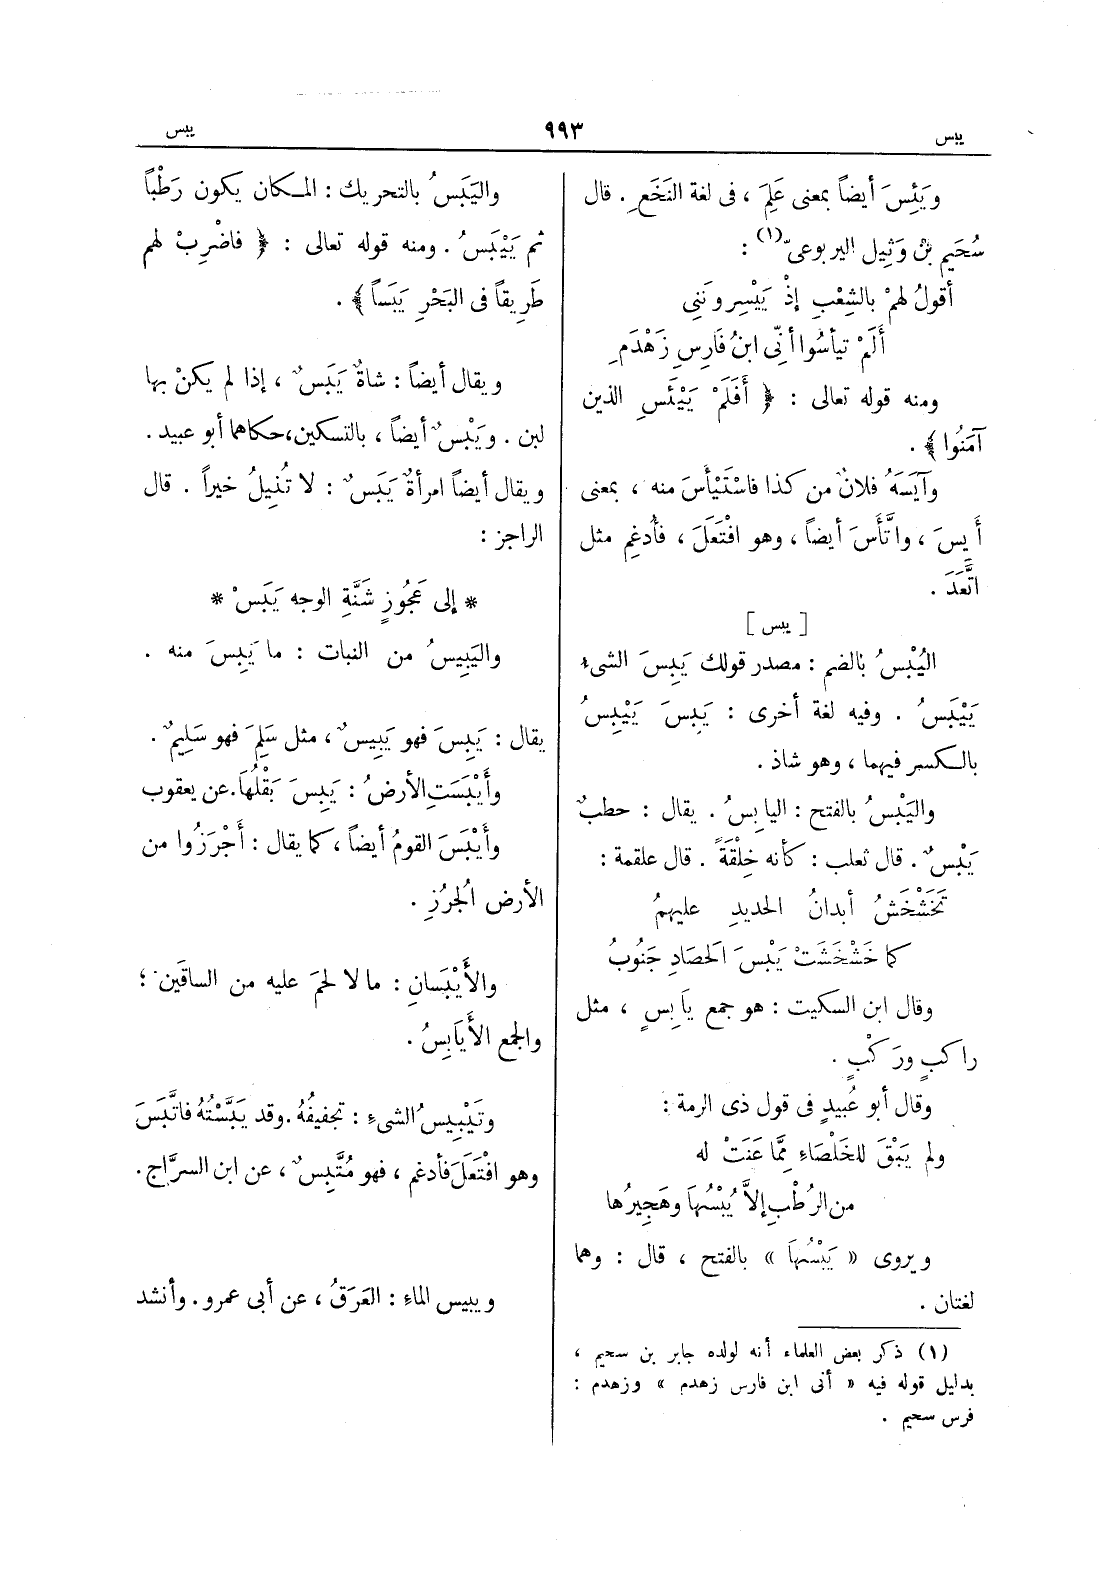 يبس
٩٩٣
يبس
وَيَئِسَ أيضاً بمعنى عَلِمَ ، فى لغة النَخَعِ . قال
سُحَيم بْن وَثِيل اليربوعىّ (١) :
أقولُ لهمْ بالشِعْبِ إذْ يَيْسِرونَنِى
أَلَمْ تيأسُوا أنِّى ابنُ فَارِسِ زَهْدَمِ
ومنه قوله تعالى : ﴿ أَفَلَمْ يَيْئَسِ الذين
آمَنُوا ﴾ .
وآيَسَهُ فلانٌ من كذا فاسْتَيْأَسَ منه ، بمعنى
أَيِسَ ، واتَّأَسَ أيضاً ، وهو افْتَعَلَ ، فأُدغِم مثل
اتَّعَدَ .
[ يبس ]
اليُبْسُ بالضم : مصدر قولك يَبِسَ الشىء
يَيْبَسُ . وفيه لغة أخرى : يَبِسَ يَيْبِسُ
بالكسر فيهما ، وهو شاذ .
واليَبْسُ بالفتح : اليابِسُ . يقال : حطبٌ
يَبْسٌ . قال ثعلب : كأنه خِلْقَةً . قال علقمة :
تَخَشْخَشُ أبدانُ الحديدِ عليهمُ
كما خَشْخَشَتْ يَبْسَ الحَصادِ جَنُوبُ
وقال ابن السكيت : هو جمع يَابِسٍ ، مثل
راكبٍ ورَكْبٍ .
وقال أبو عُبيدٍ فى قول ذى الرمة :
ولم يَبْقَ للخَلْصَاءِ مِمَّا عَنَتْ له
من الرُطْبِ إلاَّ يُبْسُهاَ وهَجِيرُها
ويروى « يَبْسُهاَ » بالفتح ، قال : وهما
لغتان .
(١) ذكر بعض العلماء أنه لولده جابر بن سحيم ،
بدليل قوله فيه « أنى ابن فارس زهدم » وزهدم :
فرس سحيم .
واليَبَسُ بالتحريك : المكان يكون رَطْباً
ثم يَيْبَسُ . ومنه قوله تعالى : ﴿ فاضْرِبْ لهم
طَرِيقاً فى البَحْرِ يَبَساً ﴾ .
ويقال أيضاً : شاةٌ يَبَسٌ ، إذا لم يكنْ بها
لبن . ويَبْسٌ أيضاً ، بالتسكين، حكاهما أبو عبيد .
ويقال أيضاً امرأةٌ يَبَسٌ : لا تُنِيلُ خيراً . قال
الراجز :
* إلى عَجُوزٍ شَنَّةِ الوجه يَبَسْ *
واليَبِيسُ من النبات : ما يَبِسَ منه .
يقال : يَبِسَ فهو يَبِيسٌ ، مثل سَلِمَ فهو سَلِيمٌ .
وأَيْبَسَتِ الأرضُ : يَبِسَ بَقْلُهاَ. عن يعقوب
وأَيْبَسَ القومُ أيضاً ، كما يقال : أَجْرَزُوا من
الأرض الجُرُزِ .
والأَيْبَسانِ : ما لا لحمَ عليه من الساقَين ؛
والجمع الأَيَابِسُ .
وتَيْبِيسُ الشىءِ : تجفيفُهُ. وقد يَبَّسْتُهُ فاتَّبَسَ
وهو افْتَعَلَ فأدغم ، فهو مُتَّبِسٌ ، عن ابن السرَّاج .
ويبيس الماءِ : العَرَقُ ، عن أبى عمرو . وأنشد